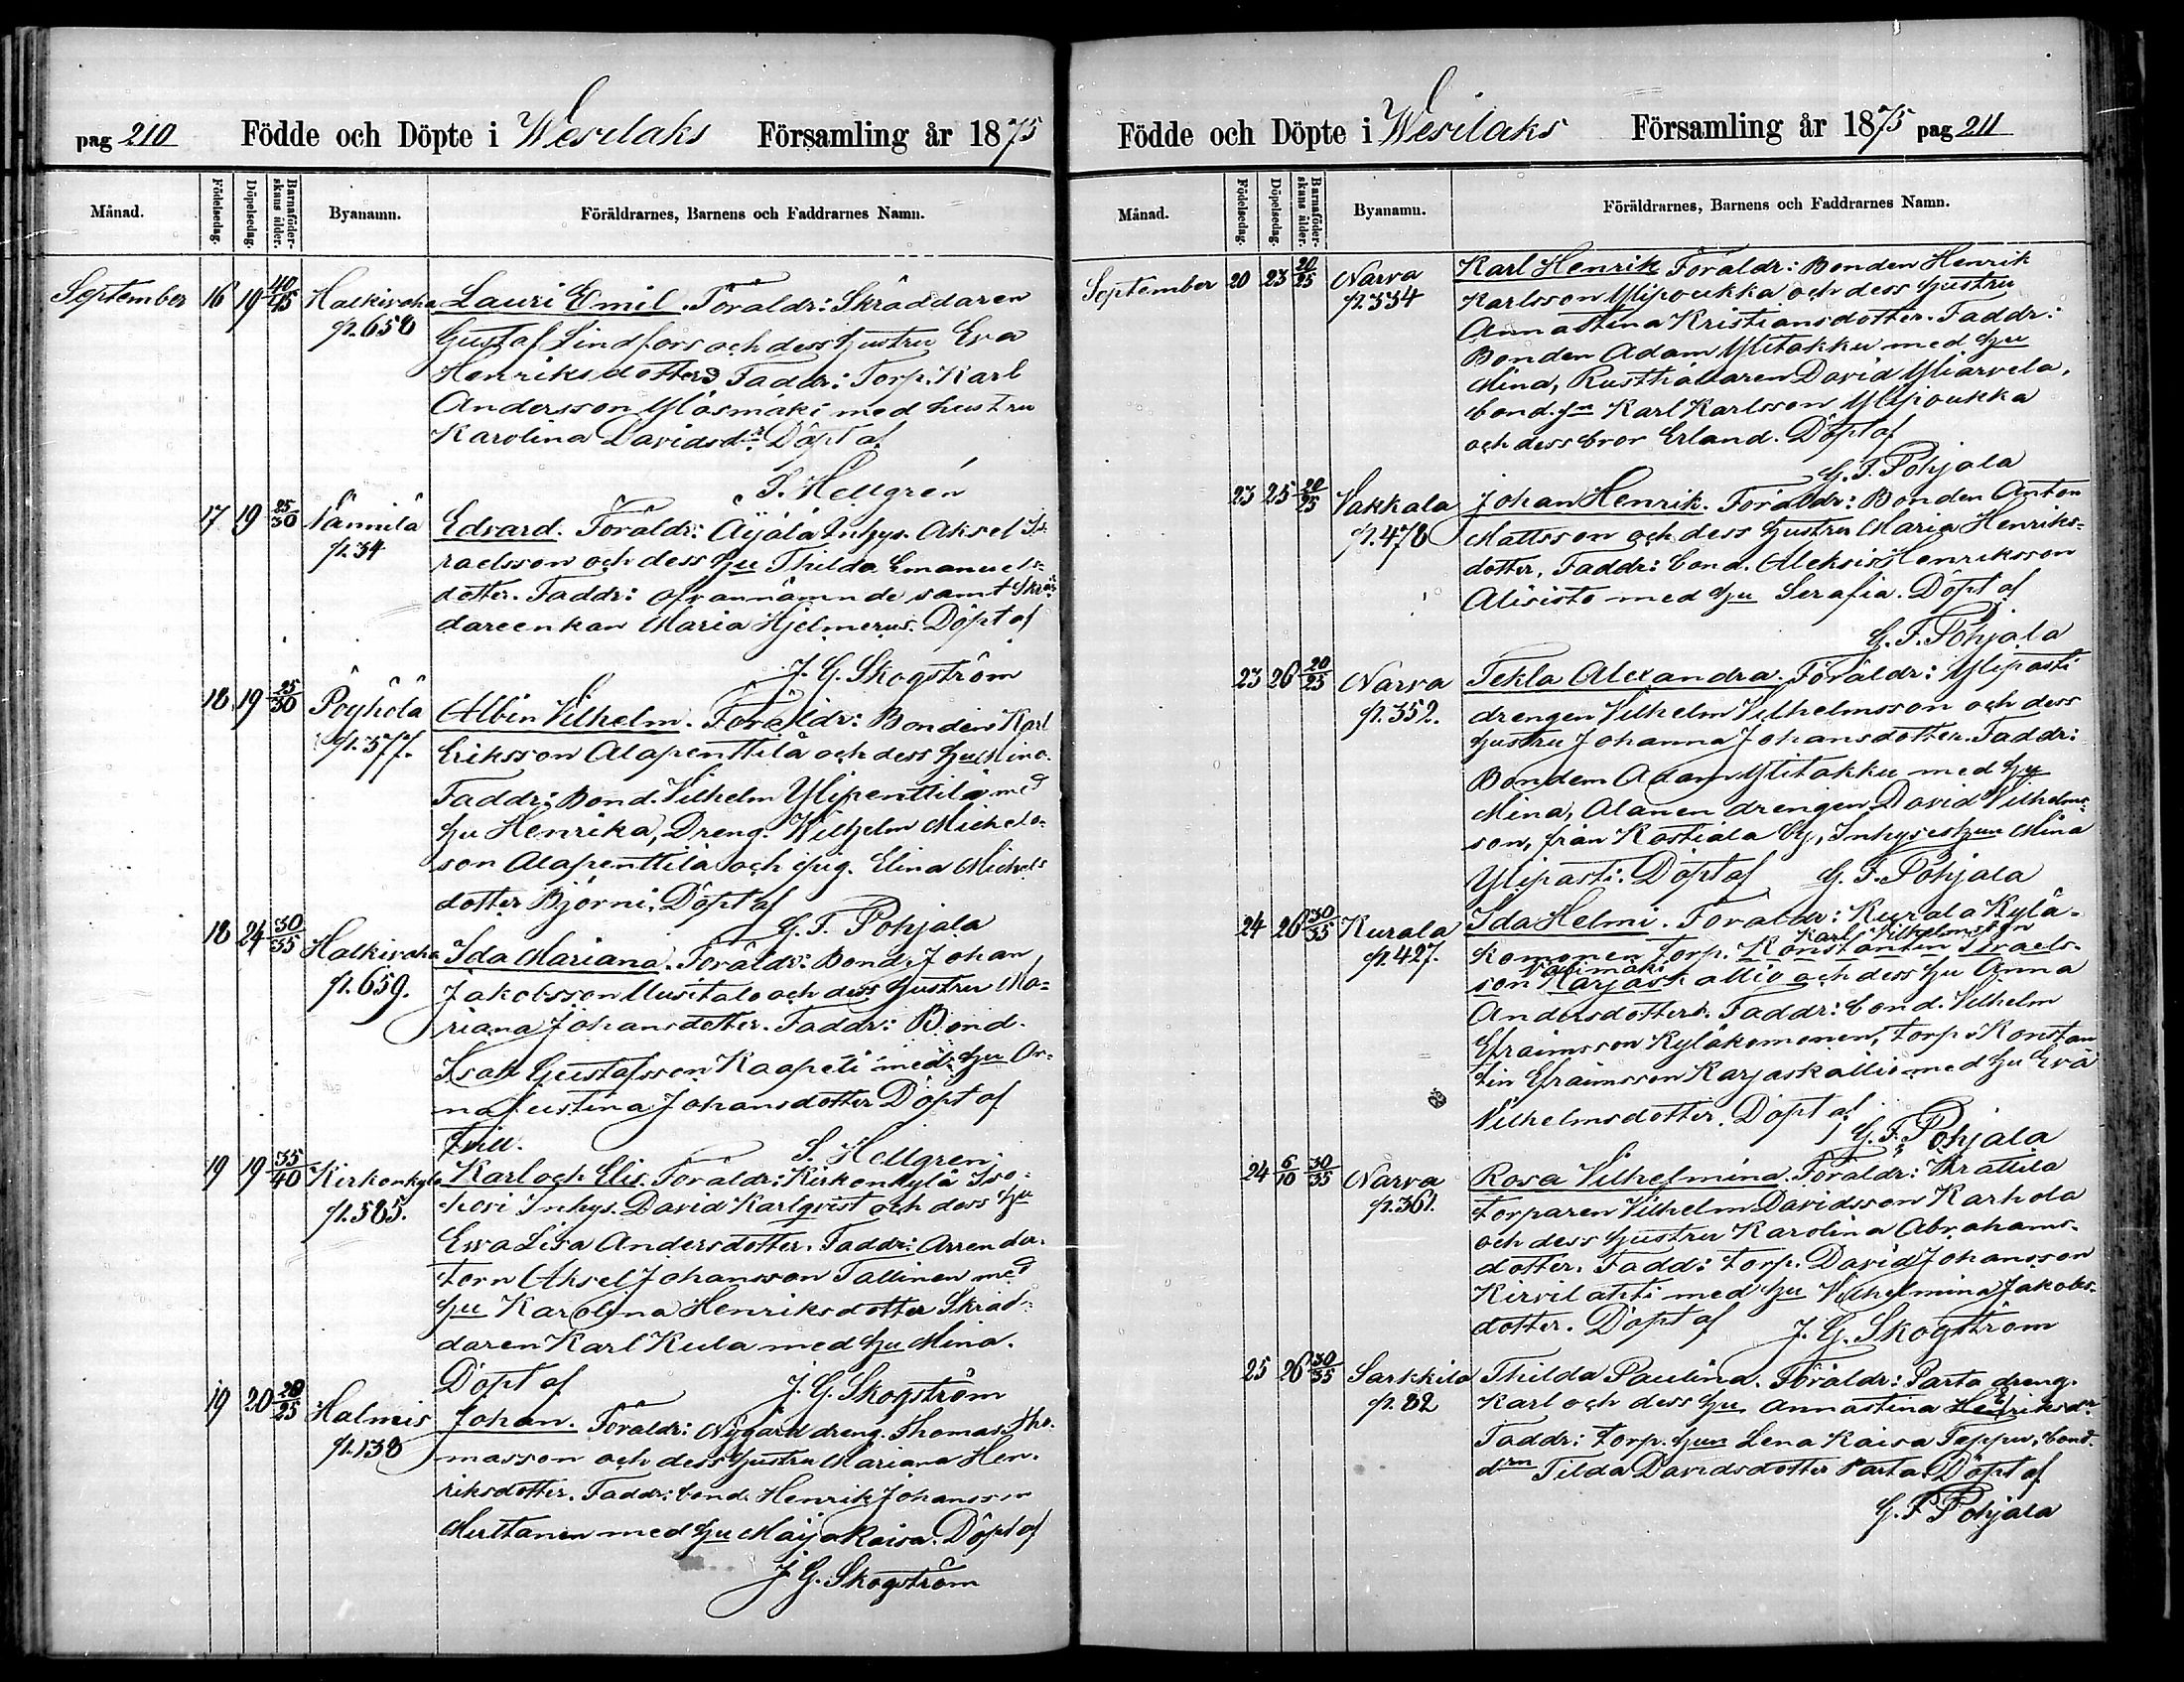 pag 210 Födde och Döpte i Wesilaks Församling år 1875
Månad. Födelsedag. Döpelsedag. Barnaföderskans ålder. Byanamn. Föräldrarnes, Barnens och Faddrarnes Namn.
September 16 19 40/45 Halkivaha Lauri Emil. Föräldr: Skräddaren
p. 658 Gustaf Lindfors och dess hustru Eva
Henriksdotter Faddr: Torp. Karl
Andersson Ylösmäki med hustru
Karolina Davidsdr. Döpt af
S. Hellgrén
17 19 25/30 Nännilä Edvard. Föräldr: Äijälä Inhys. Aksel Is-
p. 34 raelsson och dess hu Thilda Emanuels-
dotter. Faddr: ofvannämnde samt Skräd-
dareenkan Maria Hjelmerus. Döpt af
J. G. Skogström
18 19 25/30 Pöyhölä Albin Vilhelm. Föräldr: Bonden Karl
p. 377. Eriksson Alapenttilä och dess hu Mina.
Faddr: Bond. Vilhelm Ylipenttilä med
hu Henrika, Dreng. Wilhelm Michels-
son Alapenttilä och pig. Elina Michels
dotter Björni. Döpt af
G. F. Pohjala
18 24 30/35 Halkivaha Ida Mariana. Föräldr: Bond. Johan
p. 659. Jakobsson Uusitalo och dess hustru Ma-
riana Johansdotter. Faddr: Bond.
Isak Gustafsson Kaapeli med hu An-
na Justina Johansdotter Döpt af
S. Hellgren
19 19 35/40 Kirkonkylä Karl och Elis. Föräldr: Kirkonkylä Iso-
p. 585. Inhys. David Karlqvist och dess hu
Eva Lisa Andersdotter. Faddr: Arrenda-
torn Aksel Johansson Tallinen med
hu Karolina Henriksdotter Skräd-
daren Karl Kula med hu Mina.
Döpt af J. G. Skogström
19 20 20/25 Halmis Johan. Föräldr: Nygård dreng. Thomas Tho-
p. 138 masson och dess hustru Mariana Hen-
riksdotter. Faddr: bond. Henrik Johansson
Multanen med hu Maija Kaisa. Döpt af
J. G. Skogström
Födde och Döpte i Wesilaks Församling år 1875 pag 211
Månad. Födelsedag. Döpelsedag. Barnaföderskans ålder. Byanamn. Föräldrarnes, Barnens och Faddrarnes Namn.
September 20 23 20/25 Narva Karl Henrik Föräldr: Bonden Henrik
p. 334 Karlsson Ylipoukka och dess hustru
Anna Stina Kristiansdotter. Faddr:
Bonden Adam Ylitakku med hu
Mina, Rusthållaren David Yliarvela,
bond. sn Karl Karlsson Ylipoukka
och dess bror Erland. Döpt af
G. F. Pohjala
23 25 20/25 Vakkala Johan Henrik. Föräldr: Bonden Anton
p. 478 Mattsson och dess hustru Maria Henriks-
dotter, Faddr: bond. Aleksis Henriksson
Alisisto med hu Serafia. Döpt af
G. F. Pohjala
23 26 20/25 Narva Tekla Alexandra. Föräldr: Ylipasti
p. 352. drengen Vilhelm Vilhelmsson och dess
hustru Johanna Johansdotter. Faddr:
Bonden Adam Ylitakku med hu
Mina, Alanen drengen David Vilhelms-
son, från Kostiala by, Inhyses hun Mina
Ylipasti. Döpt af G. F. Pohjala
24 26 30/35 Kurala Ida Helmi. Föräldr: Kurala Kylä-
Karl Vilhelmsson
p. 427. komonen Torp. Konstantin Israels-
Valimäki
son Karjaskallio och dess hu Anna
Andersdotter. Faddr: bond. Vilhelm
Efraimsson Kyläkomonen, torp. Konstan
tin Efraimsson Karjaskallio med hu Eva
Vilhelmsdotter. Döpt af
G. F. Pohjala
24 6/10 30/35 Narva Rosa Vilhelmina. Föräldr: Krattila
p. 361. torparen Vilhelm Davidsson Karhola
och dess hustru Karolina Abrahams-
dotter. Fadd: torp. David Johansson
Kirvilahti med hu Vilhelmina Jakobs-
dotter. Döpt af J. G. Skogström
25 26 30/35 Sarkkila Thilda Paulina. Föräldr: Parta dreng.
p. 82 Karl och dess hu Annastina Henriksdr.
Faddr: torp. hun Lena Kaisa Teppu, bond.
drn Tilda Davidsdotter Parta. Döpt af
G. F. Pohjala